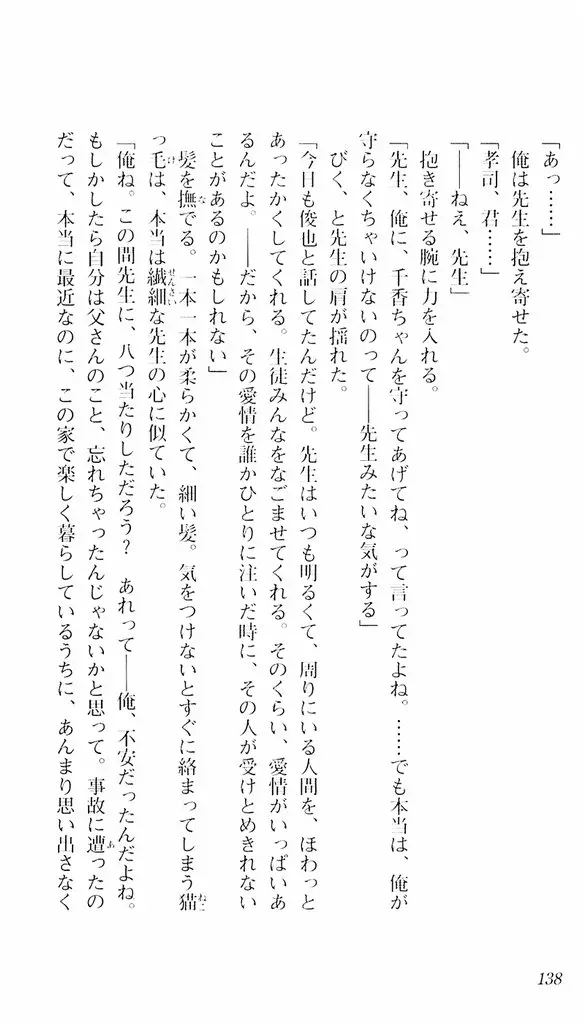 「あっ……」
俺は先生を抱え寄せた。
「孝司、君……」
「――ねえ、先生」
抱き寄せる腕に力を入れる。
「先生、俺に、千香ちゃんを守ってあげてね、って言ってたよね。……でも本当は、俺が
守らなくちゃいけないのって――先生みたいな気がする」
びく、と先生の肩が揺れた。
「今日も俊也と話してたんだけど。先生はいつも明るくて、周りにいる人間を、ほわっと
あったかくしてくれる。生徒みんなをなごませてくれる。そのくらい、愛情がいっぱいあ
るんだよ。――だから、その愛情を誰かひとりに注いだ時に、その人が受けとめきれない
ことがあるのかもしれない」
髪を撫でる。一本一本が柔らかくて、細い髪。気をつけないとすぐに絡まってしまう猫
っ毛は、本当は繊細な先生の心に似ていた。
「俺ね。この間先生に、八つ当たりしただろう？　あれって――俺、不安だったんだよね。
もしかしたら自分は父さんのこと、忘れちゃったんじゃないかと思って。事故に遭ったの
だって、本当に最近なのに、この家で楽しく暮らしているうちに、あんまり思い出さなく
138